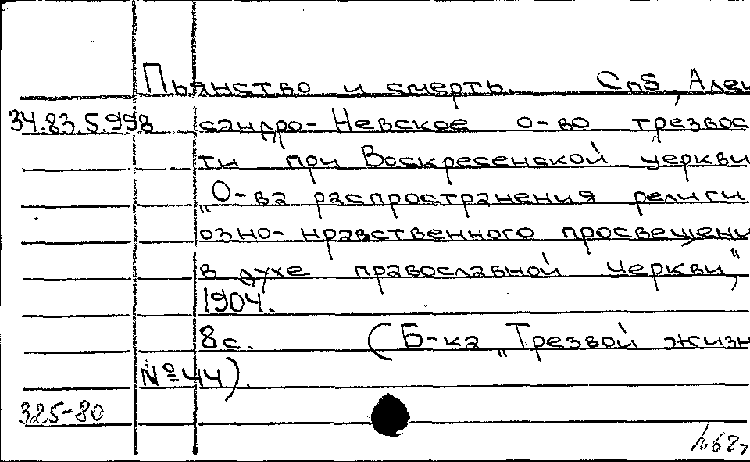 Пьянство и смерть. Спб, Алек
34.83.5.998 сандро-Невское о-во трезвос
ти при Воскресенской церкви
„О-ва распространения религи
озно-нравственного просвещени
в духе православной церкви",
1904.
8с. (Б-ка „Трезвой жизн
№44).
385-80